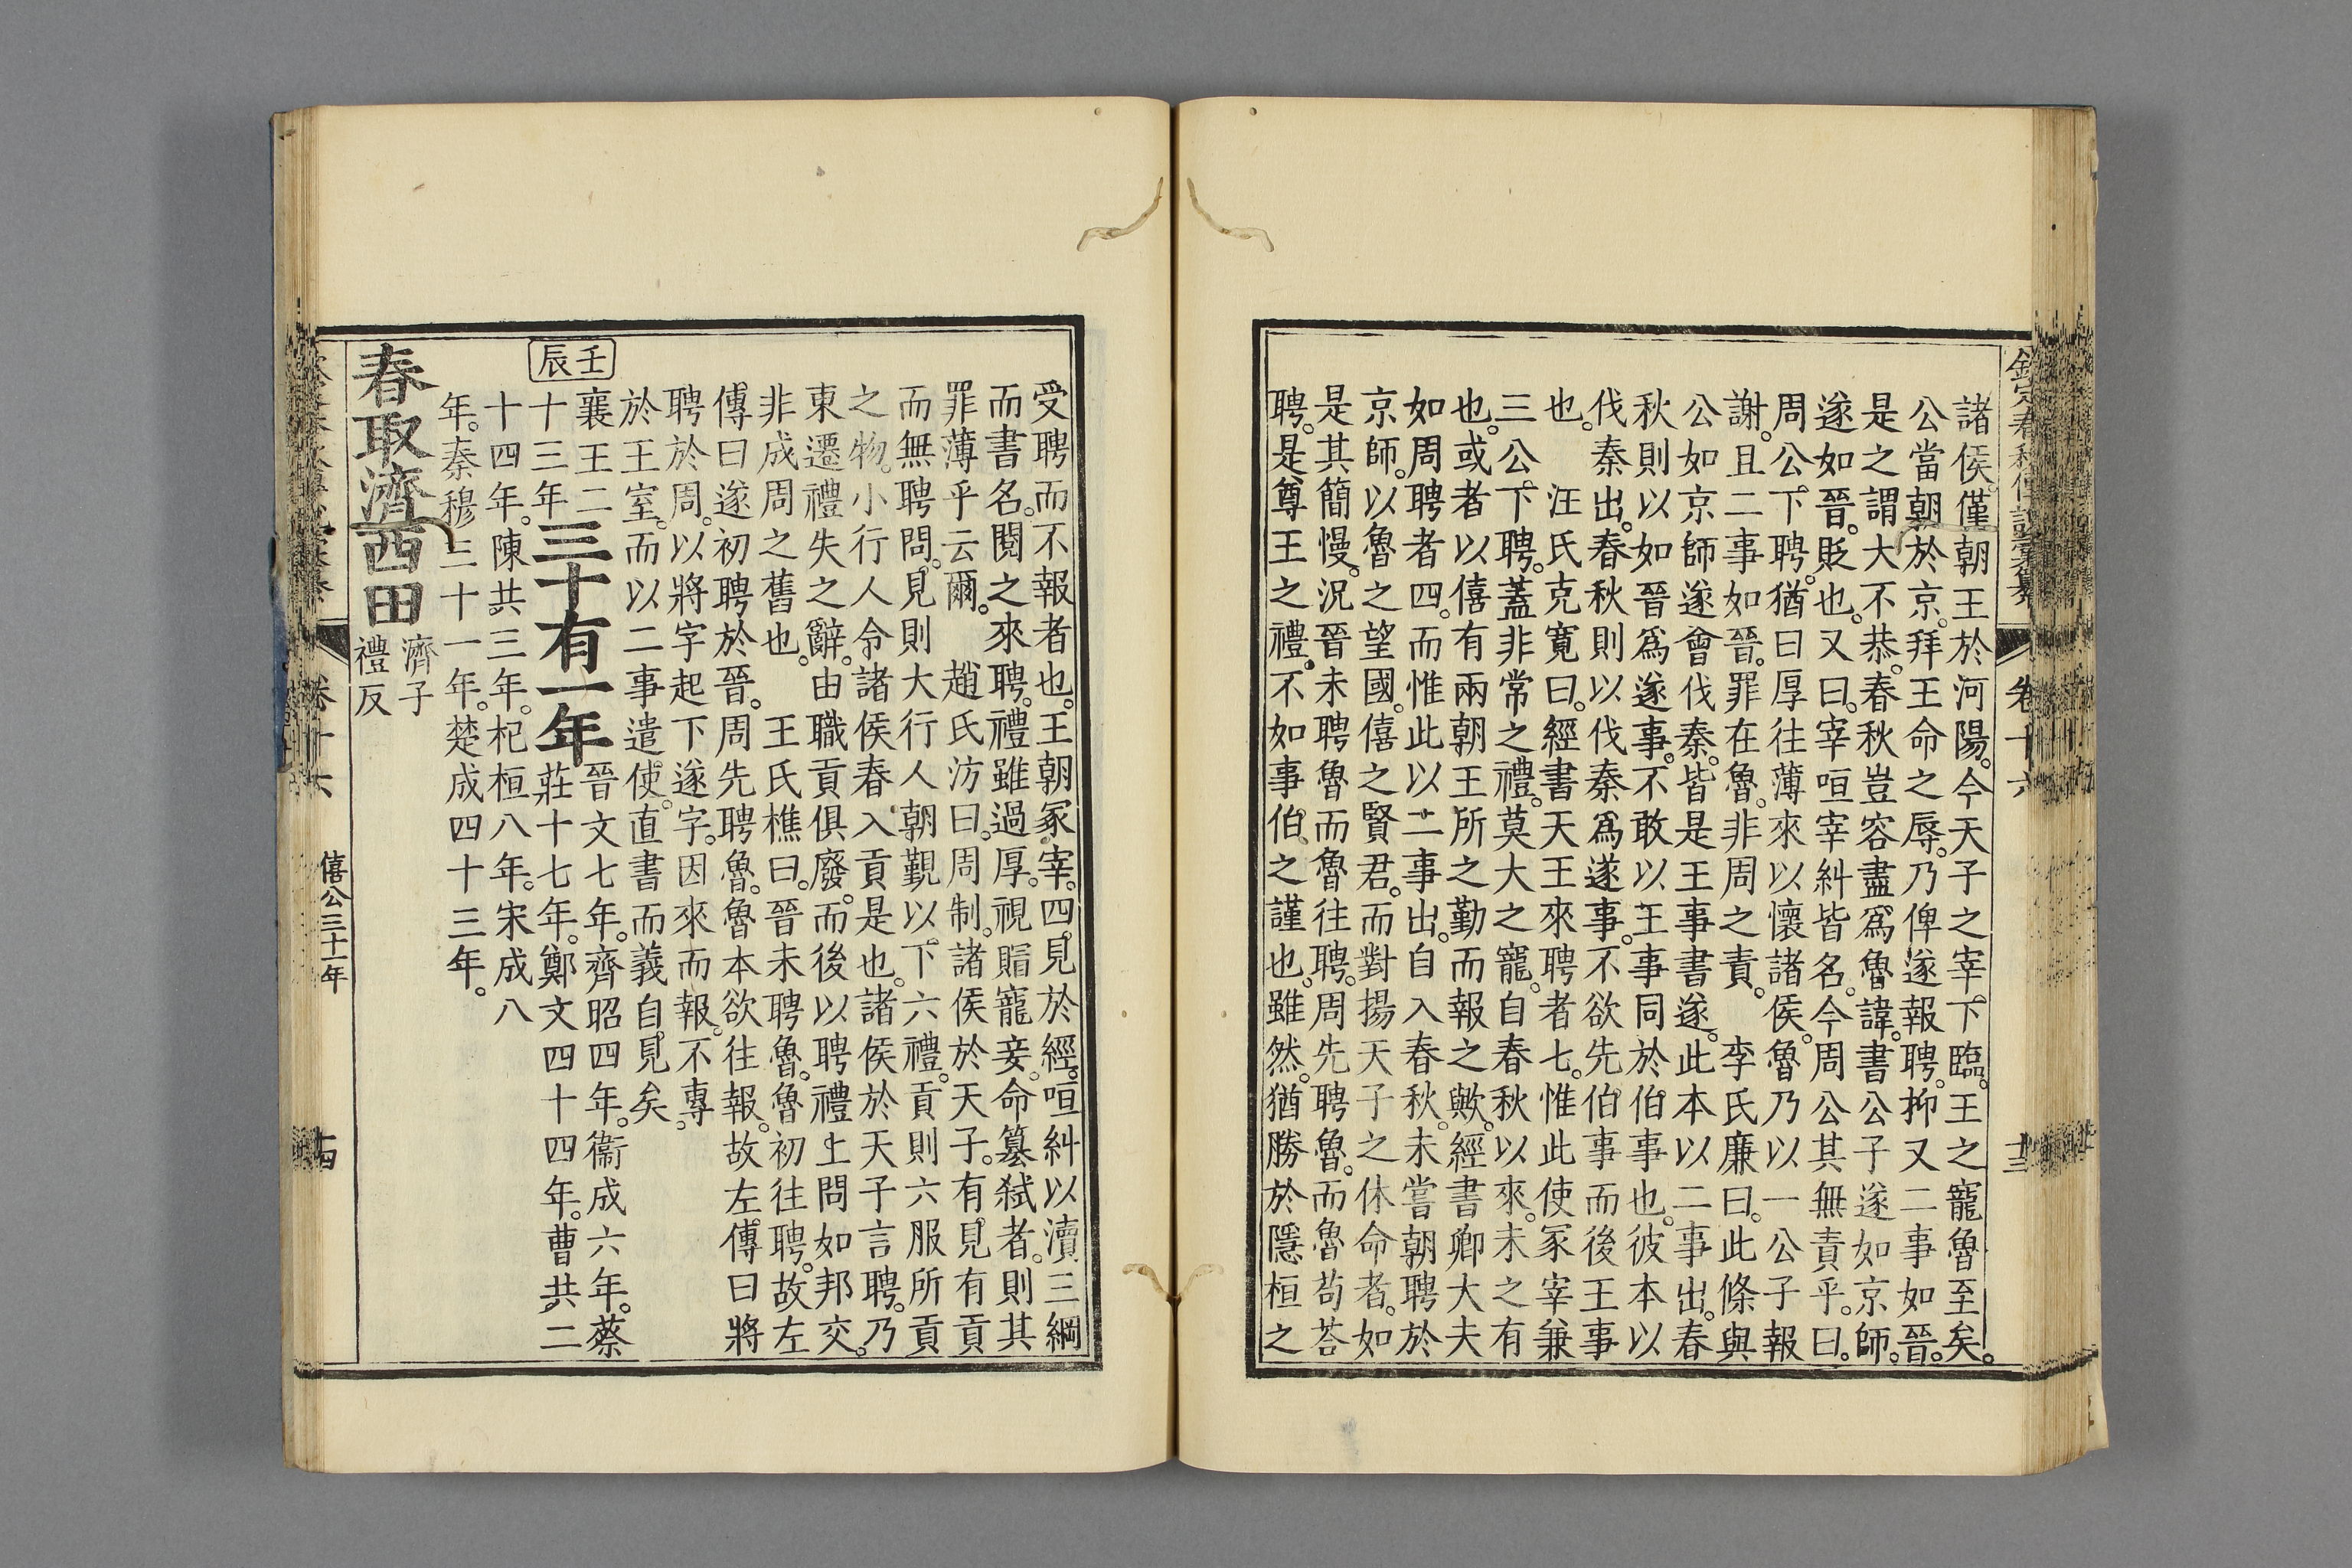 諸侯僅朝王於河陽今天子之宰下臨王之寵魯至矣
公當朝於京拜王命之辱乃俾遂報聘抑又二事如晉
是之謂大不恭春秋豈容盡爲魯諱書公子遂如京師
遂如晉貶也又曰宰咺宰糾皆名今周公其無責乎曰
周公下聘猶曰厚往薄來以懷諸侯魯乃以一公子報
謝且二事如晉罪在魯非周之責　李氏廉曰此條與
公如京師遂會伐秦皆是王事書遂此本以二事出春
秋則以如晉爲遂事不敢以王事同於伯事也彼本以
伐秦出春秋則以伐秦爲遂事不欲先伯事而後王事
也　汪氏克寬曰經書天王來聘者七惟此使冢宰兼
三公下聘蓋非常之禮莫大之寵自春秋以來未之有
也或者以僖有兩朝王所之勤而報之歟經書卿大夫
如周聘者四而惟此以二事出自入春秋未嘗朝聘於
京師以魯之望國僖之賢君而對揚天子之休命者如
是其簡慢況晉未聘魯而魯往聘周先聘魯而魯苟荅
聘是尊王之禮不如事伯之謹也雖然猶勝於隱桓之
欽定春秋傳說彙纂　卷十六　十三
受聘而不報者也王朝冢宰四見於經咺糾以瀆三綱
而書名閱之來聘禮雖過厚視賵寵妾命篡弑者則其
罪薄乎云爾　趙氏汸曰周制諸侯於天子有見有貢
而無聘問見則大行人朝覲以下六禮貢則六服所貢
之物小行人令諸侯春入貢是也諸侯於天子言聘乃
東遷禮失之辭由職貢俱廢而後以聘禮上問如邦交
非成周之舊也　王氏樵曰晉未聘魯魯初往聘故左
傳曰遂初聘於晉周先聘魯魯本欲往報故左傳曰將
聘於周以將字起下遂字因來而報不專
於王室而以二事遣使直書而義自見矣
壬辰
襄王二十三年
三十有一年
晉文七年齊昭四年衞成六年蔡
莊十七年鄭文四十四年曹共二
十四年陳共三年杞桓八年宋成八
年秦穆三十一年楚成四十三年
春取濟西田
濟子
禮反
卷十六　僖公三十一年　十四